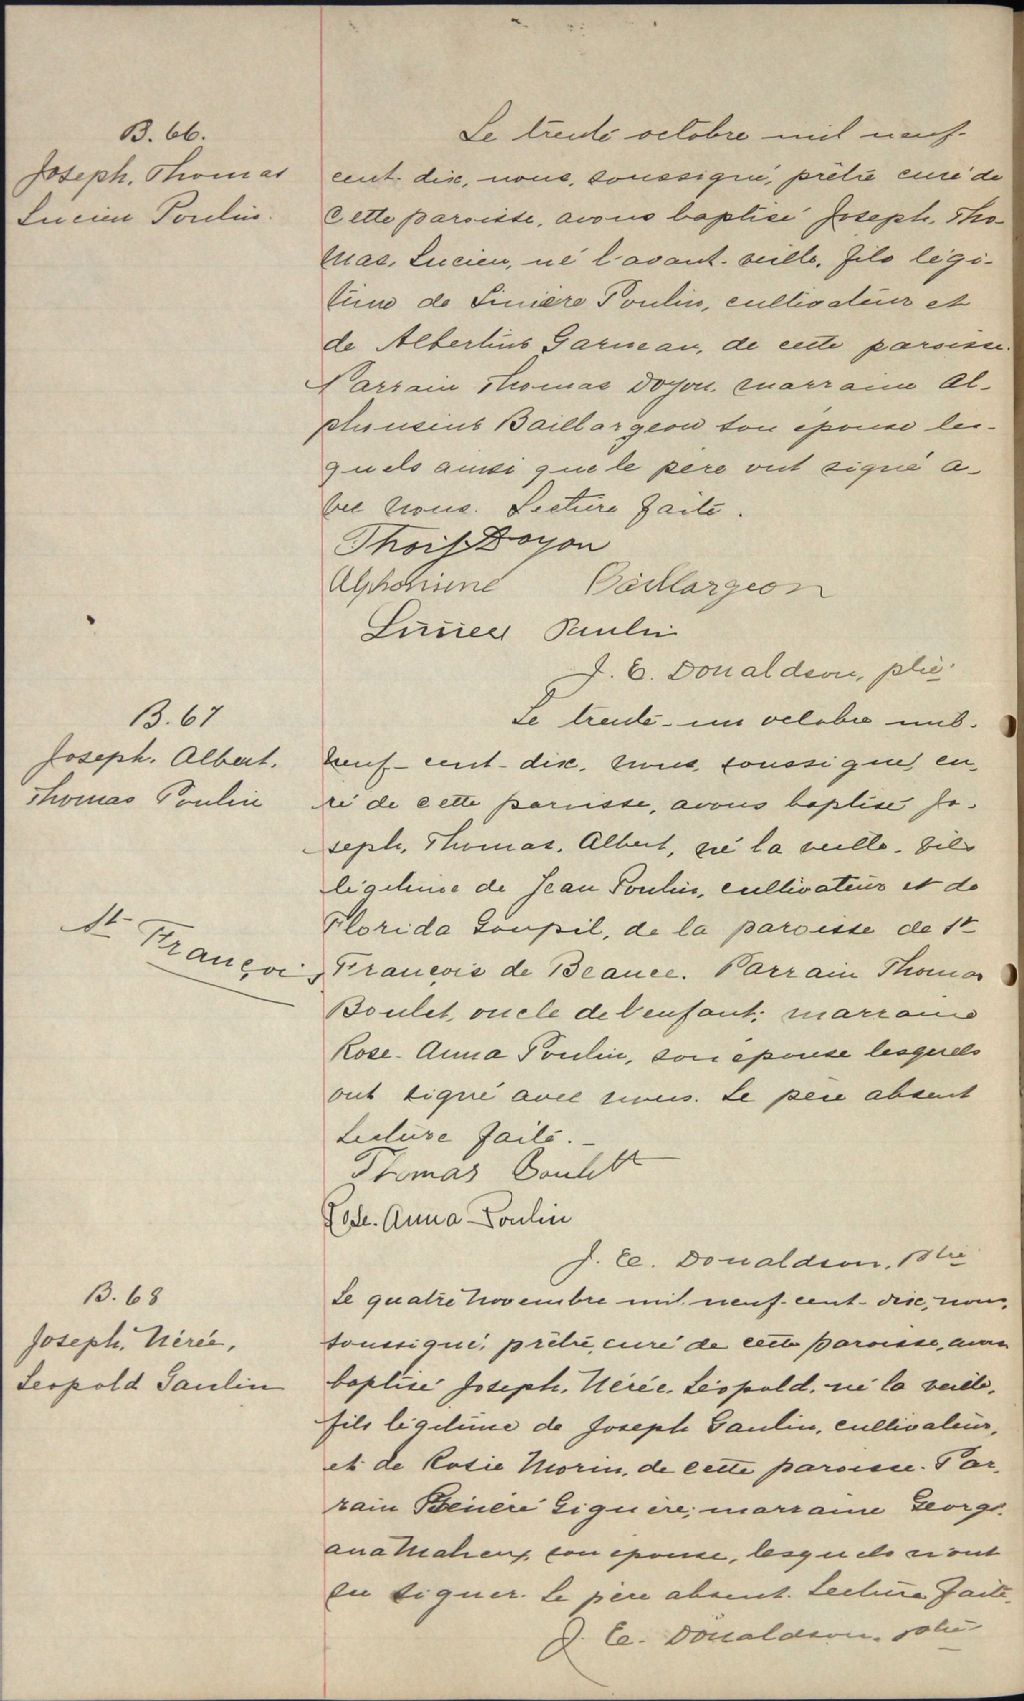 B. 66.
Joseph, Thomas
Lucien Poulin.
Le trente octobre mil neuf-
cent-dix, nous, soussigné, prêtre curé de
cette paroisse, avons baptisé Joseph, Tho-
mas, Lucien, né l'avant-veille, fils légi-
time de Linière Poulin, cultivateur et
de Albertine Garneau, de cette paroisse.
Parrain Thomas Doyon, marraine Al-
phonsine Baillargeon son épouse les-
quels ainsi que le père ont signé a-
vec nous. Lecture faite.
Thos J. Doyon
Alphonsine Baillargeon
Poulin
J. E. Donaldson, ptre.
B. 67
Joseph, Albert,
Thomas Poulin
St François
Le trente-un octobre mil-
neuf-cent-dix, nous, soussigné, cu-
ré de cette paroisse, avons baptisé Jo-
seph, Thomas, Albert, né la veille, fils
légitime de Jean Poulin, cultivateur et de
Florida Goupil, de la paroisse de St
François de Beauce. Parrain Thomas
Boulet, oncle de l'enfant; marraine
Rose-Anna Poulin, son épouse lesquels
ont signé avec nous. Le père absent
Lecture faite.-
Thomas Boulett
Rose-Anna Poulin
J. E. Donaldson, ptre
B. 68
Joseph, Nérée,
Leopold Gaulin
Le quatre novembre mil neuf-cent-dix, nous,
soussigné, prêtre, curé de cette paroisse, avons
baptisé Joseph, Nérée, Léopold, né la veille,
fils légitime de Joseph Gaulin, cultivateur,
et de Rosie Morin, de cette paroisse. Par-
rain Giguère; marraine Georgi-
ana Maheux, son épouse, lesquels n'ont
su signer. Le père absent. Lecture faite.
J. E. Donaldson, ptre